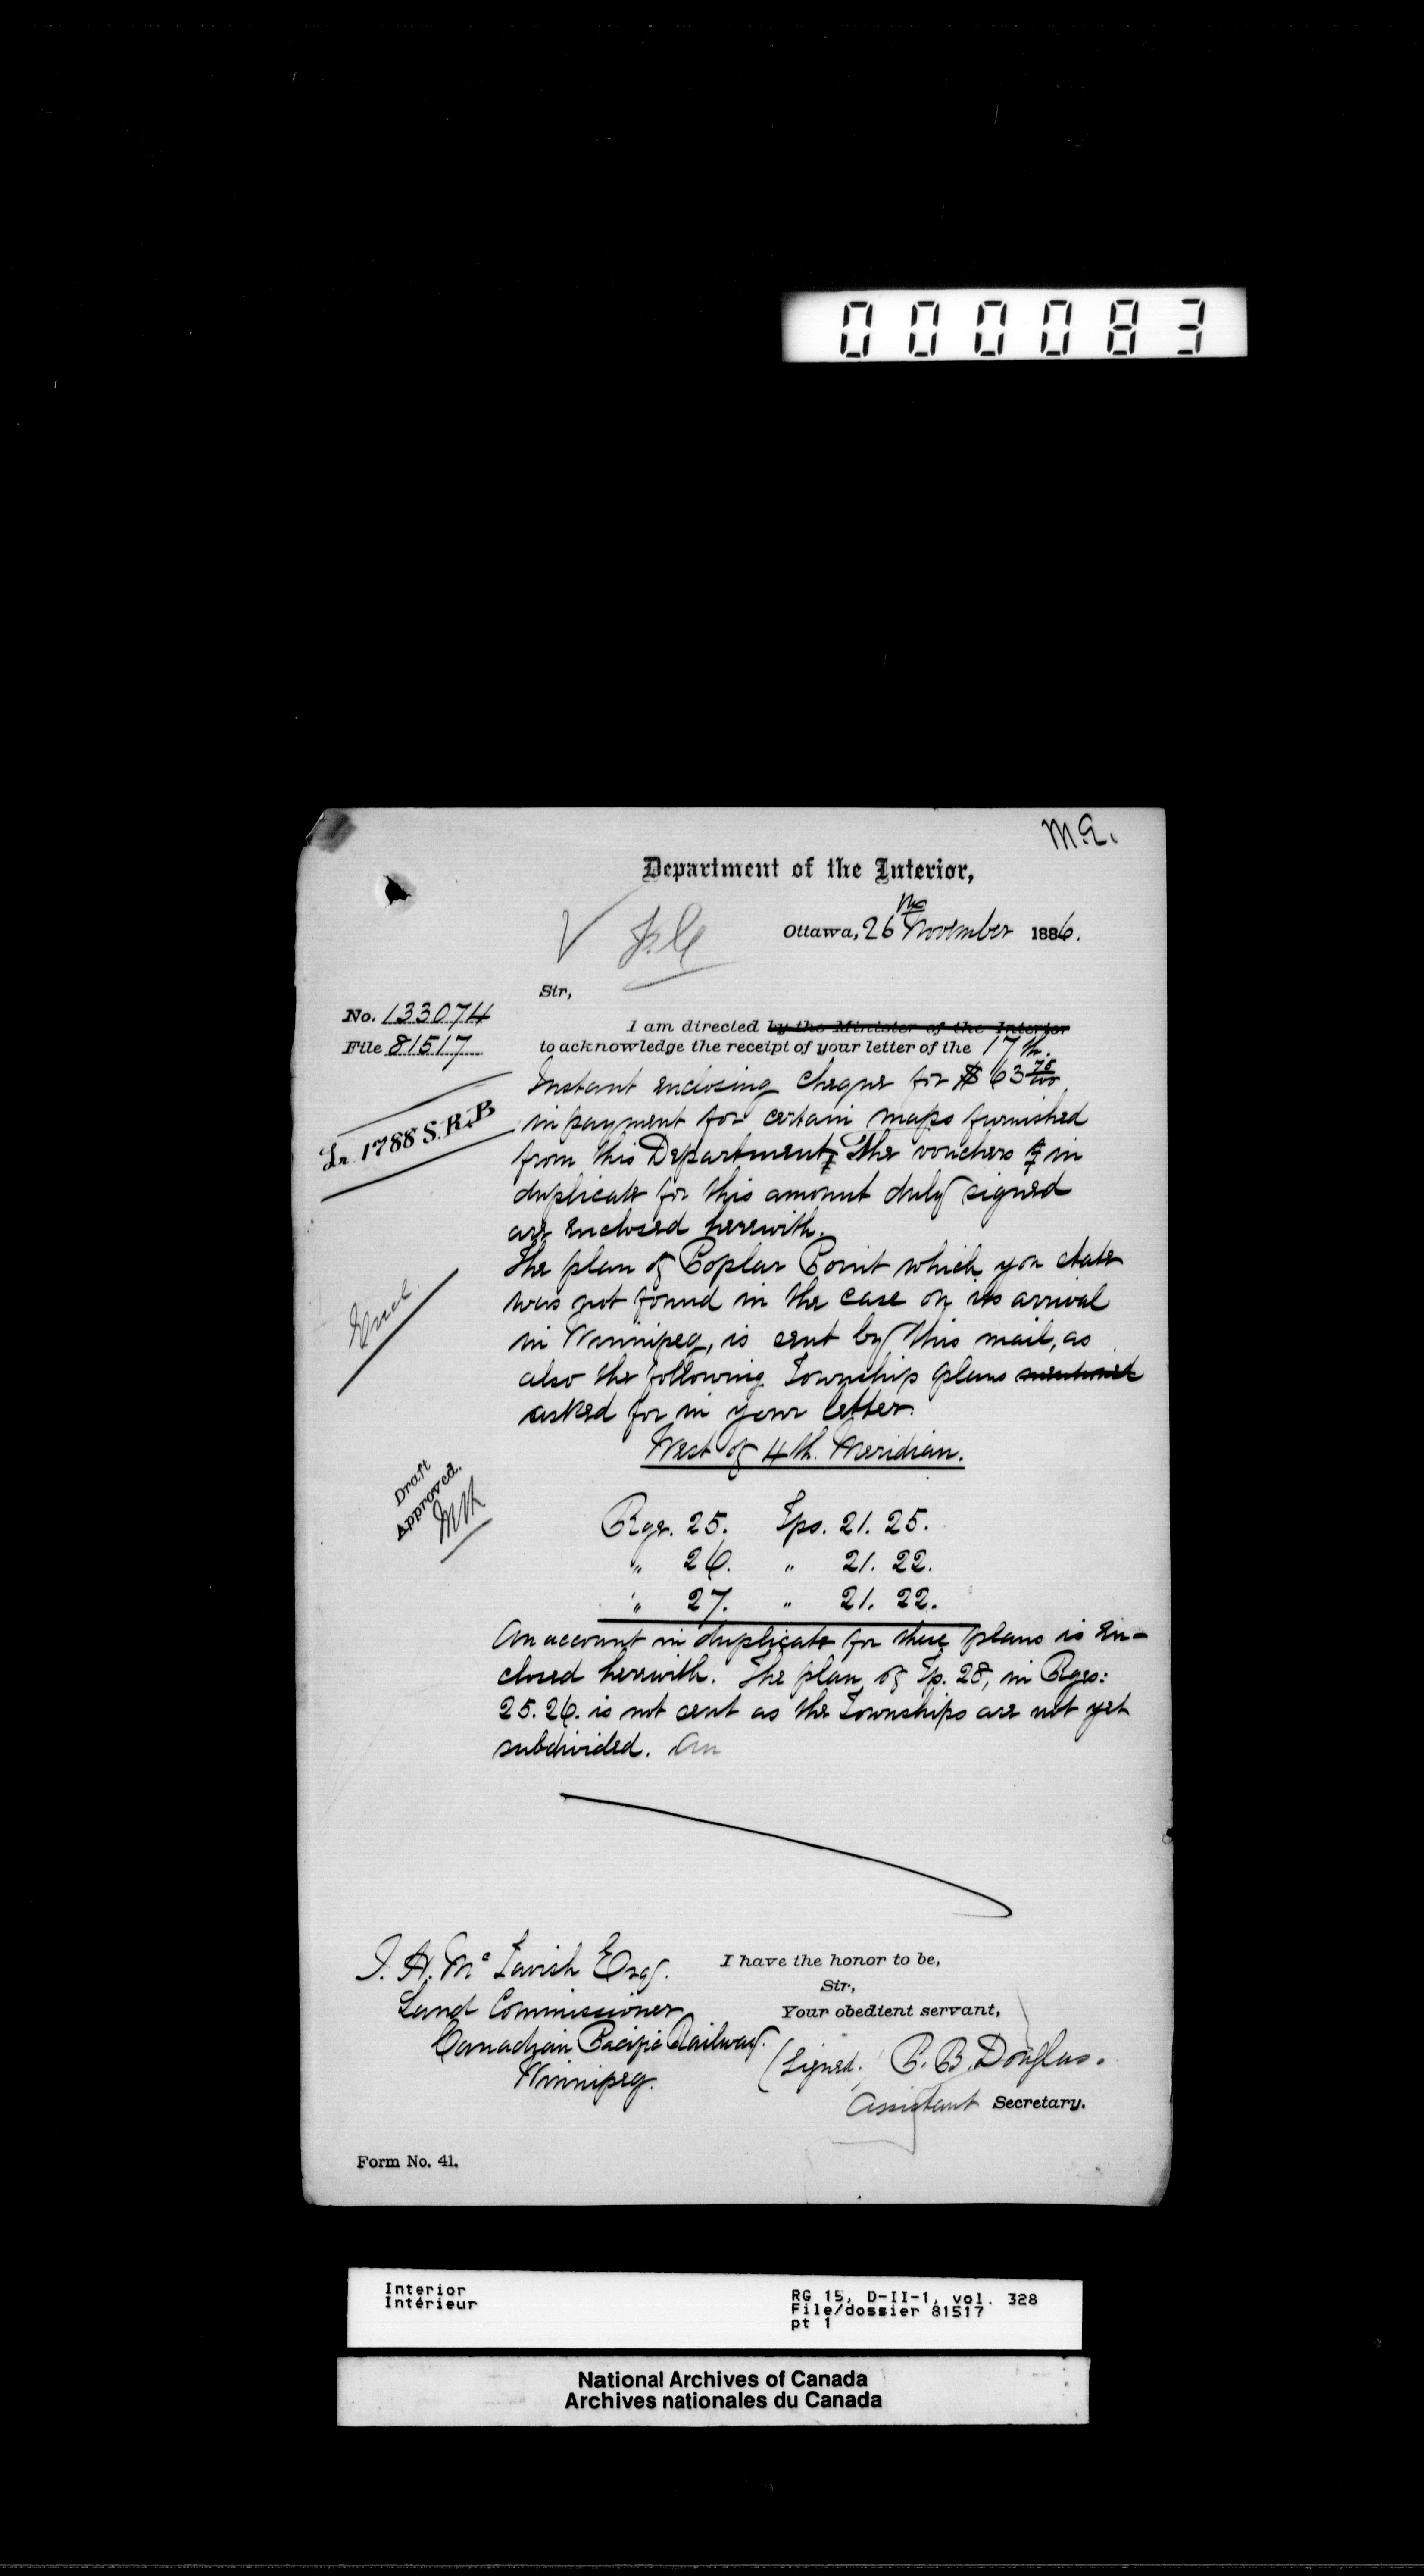 000083
M.Q.
Department of the Interior,
Ottawa, 26 November 1886.
Sir,
No. 133074
File 81517
I am directed by the Minister of the Interior
to acknowledge the receipt of your letter of the 17th.
Instant enclosing cheque for $63 75/100
in payment for certain maps furnished
from this Department, The vouchers in
duplicate for this amount duly signed
are enclosed herewith.
Lr. 1788 S.R.B
The plan of Poplar Point which you state
was not found in the case on its arrival
in Winnipeg, is sent by this mail, as
also the following Township plans mentioned
asked for in your letter.
Encl.
West of 4th. Meridian.
Draft
Approved.
Rge. 25. Tps. 21. 25.
" 26. " 21. 22.
" 27. " 21. 22.
An account in duplicate for these plans is en-
closed herewith. The plan of Tp. 28, in Rges:
25. 26. is not sent as the Townships are not yet
subdivided. An
J. H. Mc Tavish Esq.
Land Commissioner
Canadian Pacific Railway.
Winnipeg.
I have the honor to be,
Sir,
Your obedient servant,
(Signed.) P. B. Douglas.
Assistant Secretary.
Form No. 41.
Interior
Intérieur
RG 15, D-II-1, vol. 328
File/dossier 81517
pt 1
National Archives of Canada
Archives nationales du Canada